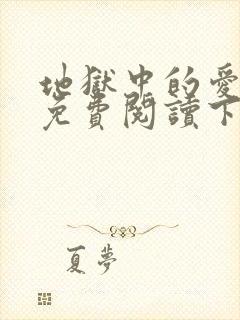 地獄中的愛
免費閱讀下
夏夢